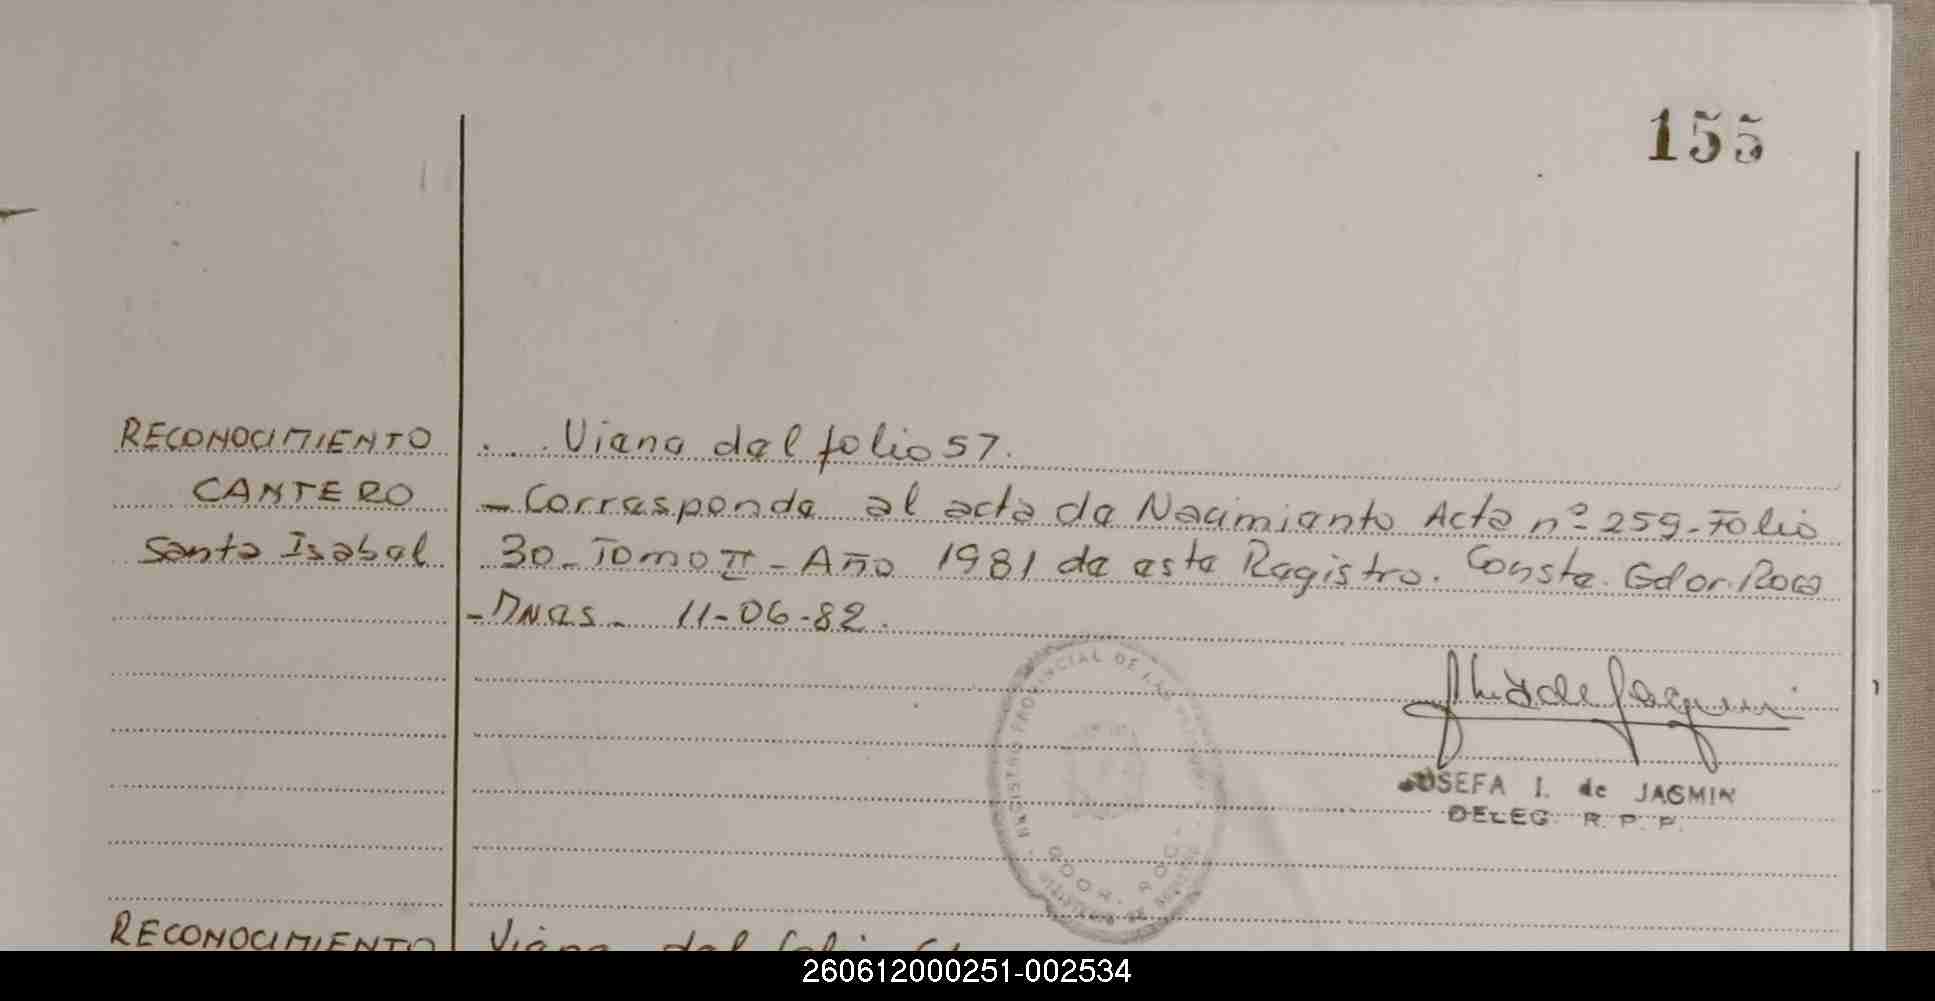 155
RECONOCIMIENTO
CANTERO
Santa Isabel
... Viene del folio 57.
- Corresponde al acta de Nacimiento Acta nº 259 - Folio
30 - Tomo II - Año 1981 de este Registro. Conste. Gdor. Roca
- Mnes - 11-06-82.
REGISTRO PROVINCIAL DE LAS
GDOR. ROCA
JOSEFA I. de JASMIN
DELEG. R. P. P.
RECONOCIMIENTO
Viene del folio
260612000251-002534